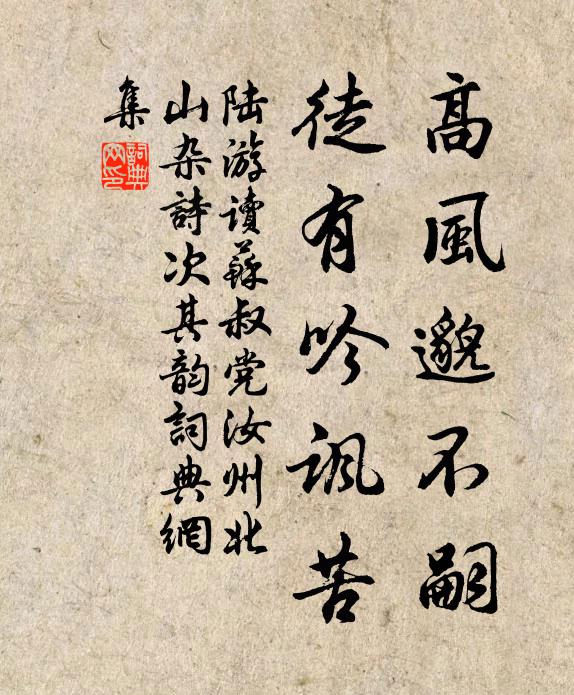 高風邈不嗣
徒有吟諷苦
陆游读蘇叔党汝州北
山杂詩次其韵詞典網
集
詞典
网印